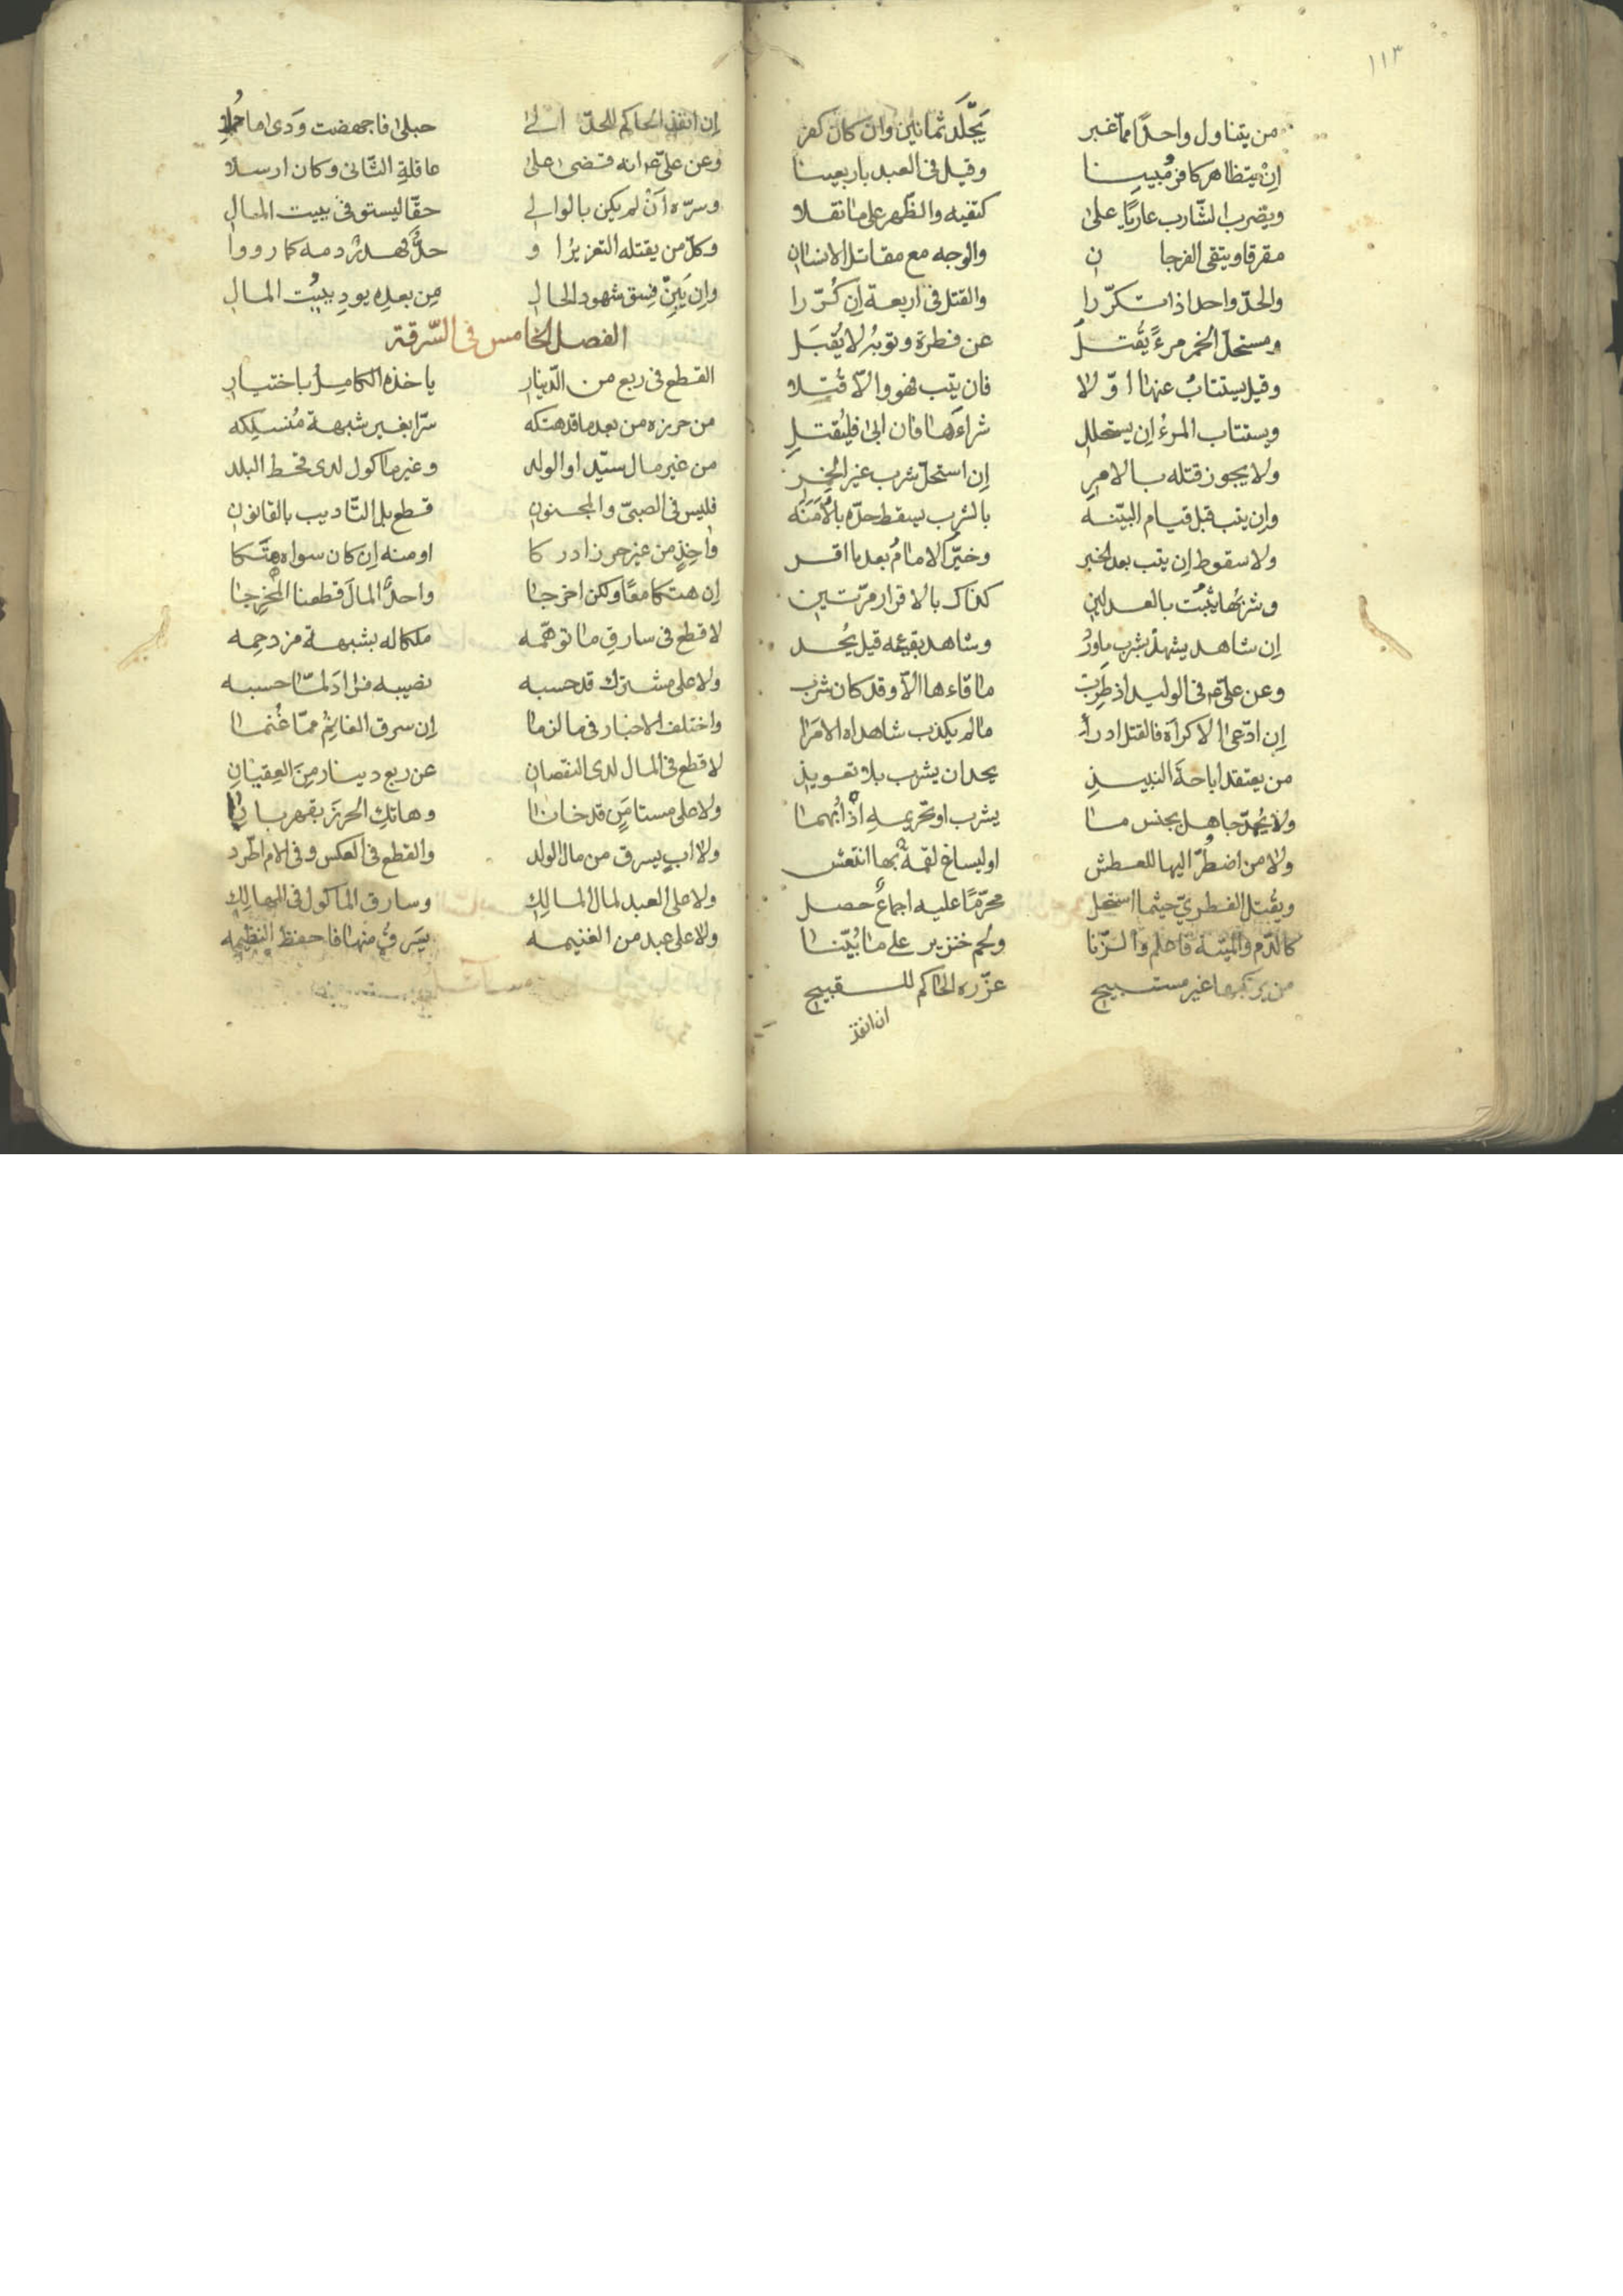 ١١٣
من يتناول واحدًا مما غبر يجلد ثمانين وان كان كفر
ان يتظاهر كافر مبينا وقيل في العبد باربعينا
ويضرب الشارب عاريا على كتفيه والظهر على ما نقلا
مفرقا ويتقى الفرجان والوجه مع مقاتل الانسان
والحد واحد اذا تكررا والقتل في اربعة ان كررا
ومستحل الخمر مرء يقتل عن فطرة وتوبه لا يقبل
وقيل يستتاب عنها اولا فان يتب فهو والا قتلا
ويستتاب المرء ان يستحلل شراءها فان ابى فليقتل
ولا يجوز قتله بالامر ان استحل شرب غير الخمر
وان يتب قبل قيام البينه بالشرب يسقط حده
ولا سقوط ان يتب بعد الخبر وخير الامام بعد ما اقر
وشربها يثبت بالعدلين كذاك بالاقرار مرتين
ان شاهد يشهد بشرب وشاهد بقيئه قيل يحد
وعن علي ع في الوليد اذ ما قاءها الا وقد كان شرب
ان ادعى الاكراه فالقتل ادرأ ما لم يكذب شاهداه الامرا
من يعتقد اباحة النبيذ يحد ان يشرب بلا تعويذ
ولا يحد جاهل بجنس ما يشرب او تحريمه اذ ابهما
ولا من اضطر اليها للعطش او ليساغ لقمة بها انتعش
ويقتل الفطري حيثما استحل محرمًا عليه اجماع حصل
كالدم والميتة فاعلم والزنا ولحم خنزير على ما بينا
من يرتكبها غير مستبيح عزره الحاكم للقبيح
ان انفذ
ان انفذ الحاكم للحد الى حبلى فاجهضت ودى ما حملا
وعن علي ع انه قضى على عاقلة الثاني وكان ارسلا
وسره ان لم يكن بالوالي حقا ليستوفى ببيت المال
وكل من يقتله التعزير او حد فهدر دمه كما رووا
وان يبن فسق شهود الحال من بعده يود ببيت المال
الفصل الخامس في السرقة
القطع في ربع من الدينار ياخذه الكامل باختيار
من حرزه من بعد ما قد هتكه سرا بغير شبهة منسلكه
من غير مال سيد او الولد وغير ماكول لدى قحط البلد
فليس في الصبي والمجنون قطع بل التاديب بالقانون
واخذ من غير حرز ادركا او منه ان كان سواه هتكا
ان هتكا معًا ولكن اخرجا واحد المال قطعنا المخرجا
لا قطع في سارق ما توهمه ملكا له بشبهة مزدحمه
ولا على مشترك قد حسبه نصيبه فزاد لما حسبه
واختلف الاخبار في ما لزما ان سرق الغانم مما غنما
لا قطع في المال لدى النقصان عن ربع دينار من العقيان
ولا على مستامن قد خانا وهاتك الحرز بقهر بانا
ولا اب يسرق من مال الولد والقطع في العكس وفي الام اطرد
ولا على العبد لمال المالك وسارق الماكول في المهالك
ولا على عبد من الغنيمه يسرق منها فاحفظ النظيمه